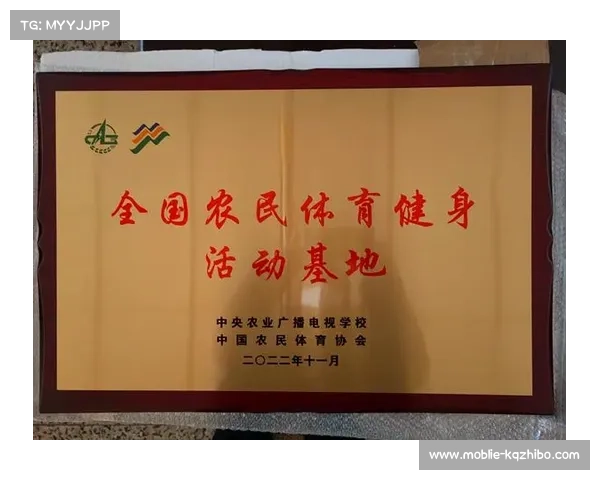 TG: MYYJJPP
全国农民体育健身
活动基地
中央农业广播电视学校
中国农民体育协会
二〇二二年十一月
www.moblie-kqzhibo.com